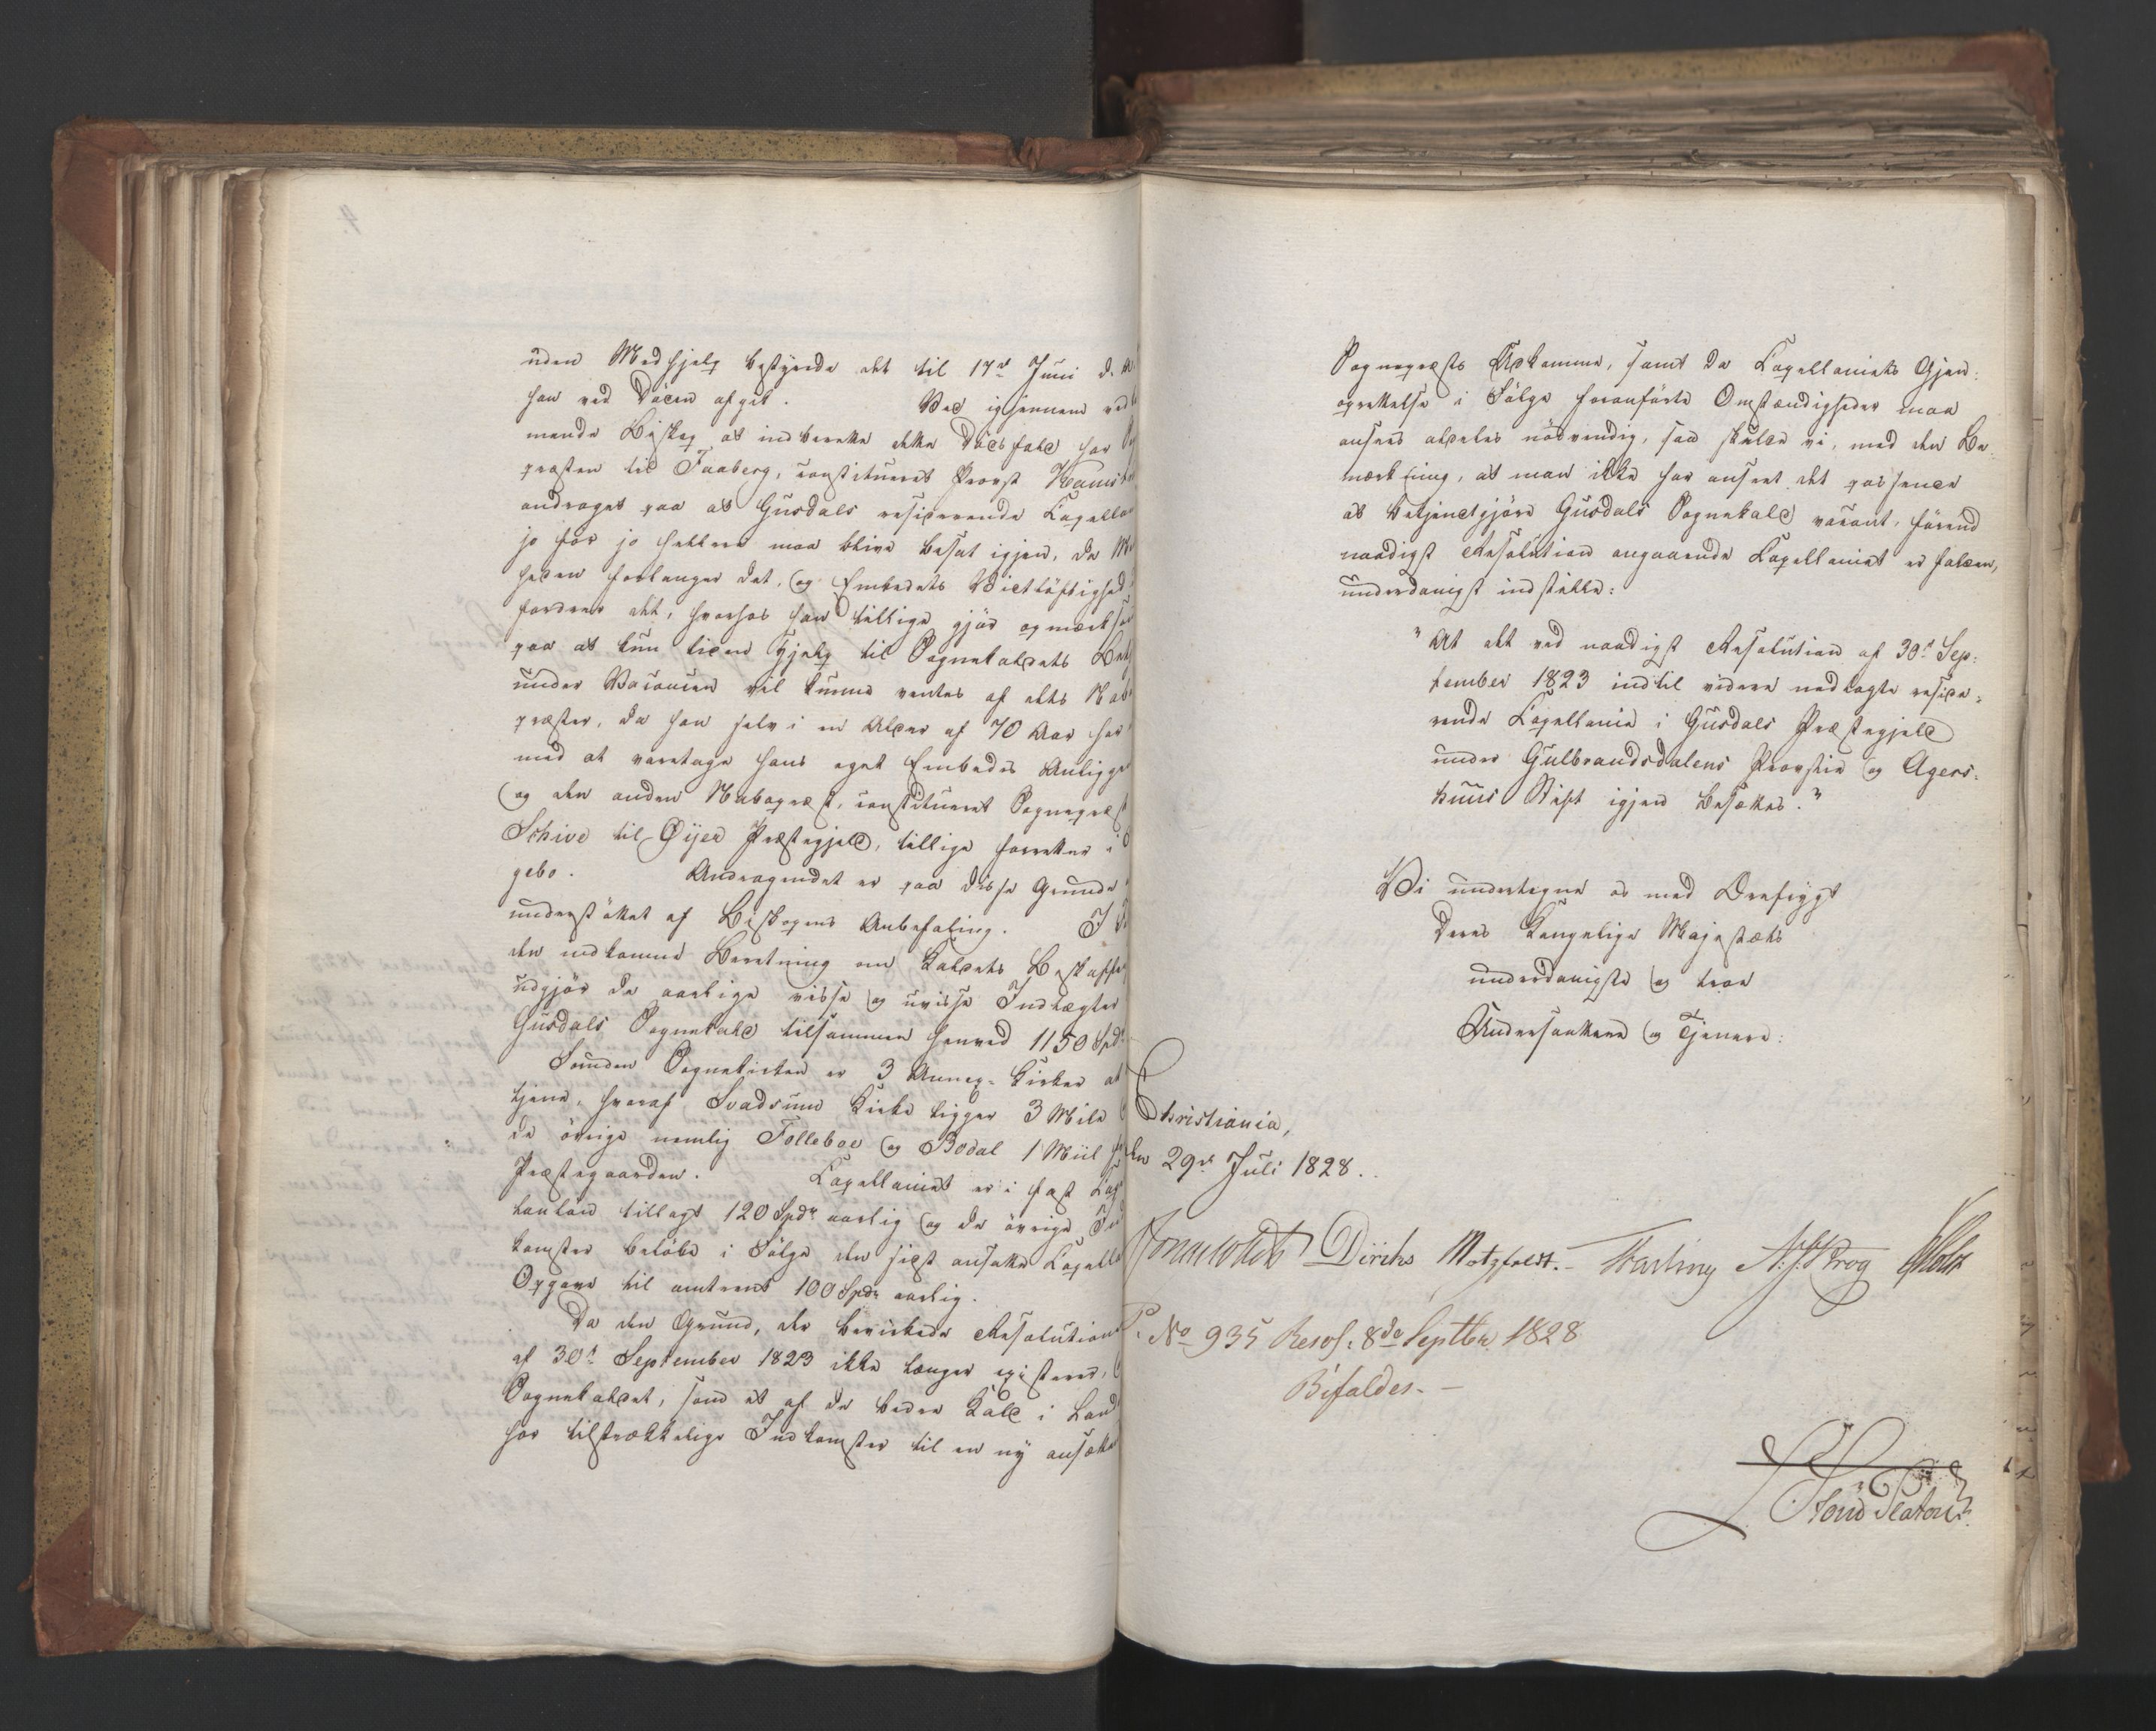 uden Medhjelp bestyrede det til 17de Juni d. A.
han ved Døden afgik. Ved igjennem ved
mende Biskop at indberette dette Dødsfald har
præsten til Faaberg, constitueret Provst
andraget paa at Gusdals residerende Capella
jo før jo hellere maa blive besat igjen, da
heden forlanger det, og Embedets Vidtløftighed
fordrer det, hvorhos han tillige gjør opmærksom
paa at kun liden Hjelp til Sognekaldets
under Vacancen vil kunne ventes af dets Nabo
præster, da han selv i en Alder af 70 Aar har
med at varetage hans eget Embedes Anligge
og den anden Nabopræst, constitueret Sognepræst
Schive til Øyer Præstegjeld, tillige forretter i
gebo. Andragendet er paa disse Grunde
understøttet af Biskopens Anbefaling. I
den indkomne Beretning om Kaldets Beskaffen
udgjør de aarlige visse og uvisse Indtægter
Gusdals Sognekald tilsammen henved 1150 Spd.
Foruden Sognekirken er 3 Annex-Kirker at
tjene, hvoraf Svadsum Kirke ligger 3 Mile
de øvrige nemlig Folleboe og Bødal 1 Miil
Præstegaarden. Capellaniet er i fast
lanløn tillagt 120 Spdr aarlig og de øvrige Ind
komster beløbe i Følge den sidst ansatte Capell
Opgave til omtrent 100 Spdr aarlig.
Da den Grund, der bevirkede Resolution
af 30te September 1823 ikke længer existerer,
Sognekaldet, som et af de bedre Kald i Land
har tilstrækkelige Indkomster til en ny ansætte
Sognepræsts Udkomme, samt da Capellaniets Gjen-
oprettelse i Følge foranførte Omstændigheder maa
ansees aldeles nødvendig, saa skulde vi, med den Be-
mærkning, at man ikke har anseet det passende
at bekjendtgjøre Gusdals Sognekald vacant, førend
naadigst Resolution angaaende Capellaniet er falden,
underdanigst indstille:
"At det ved naadigst Resolution af 30te Sep-
tember 1823 indtil videre nedlagte reside-
rende Capellanie i Gusdals Præstegjeld
under Gulbrandsdalens Provstie og Agers-
huus Stift igjen besættes."
Vi undertegne os med Dybestgt
Deres Kongelige Majestæts
underdanigste og troe
Undersaatter og Tjenere:
Christiania,
den 29de Juli 1828.
Diriks Motzfeldt. N. J. Krog Holst
P. No 935 Resol: 8de Septbr 1828
Bifaldes.